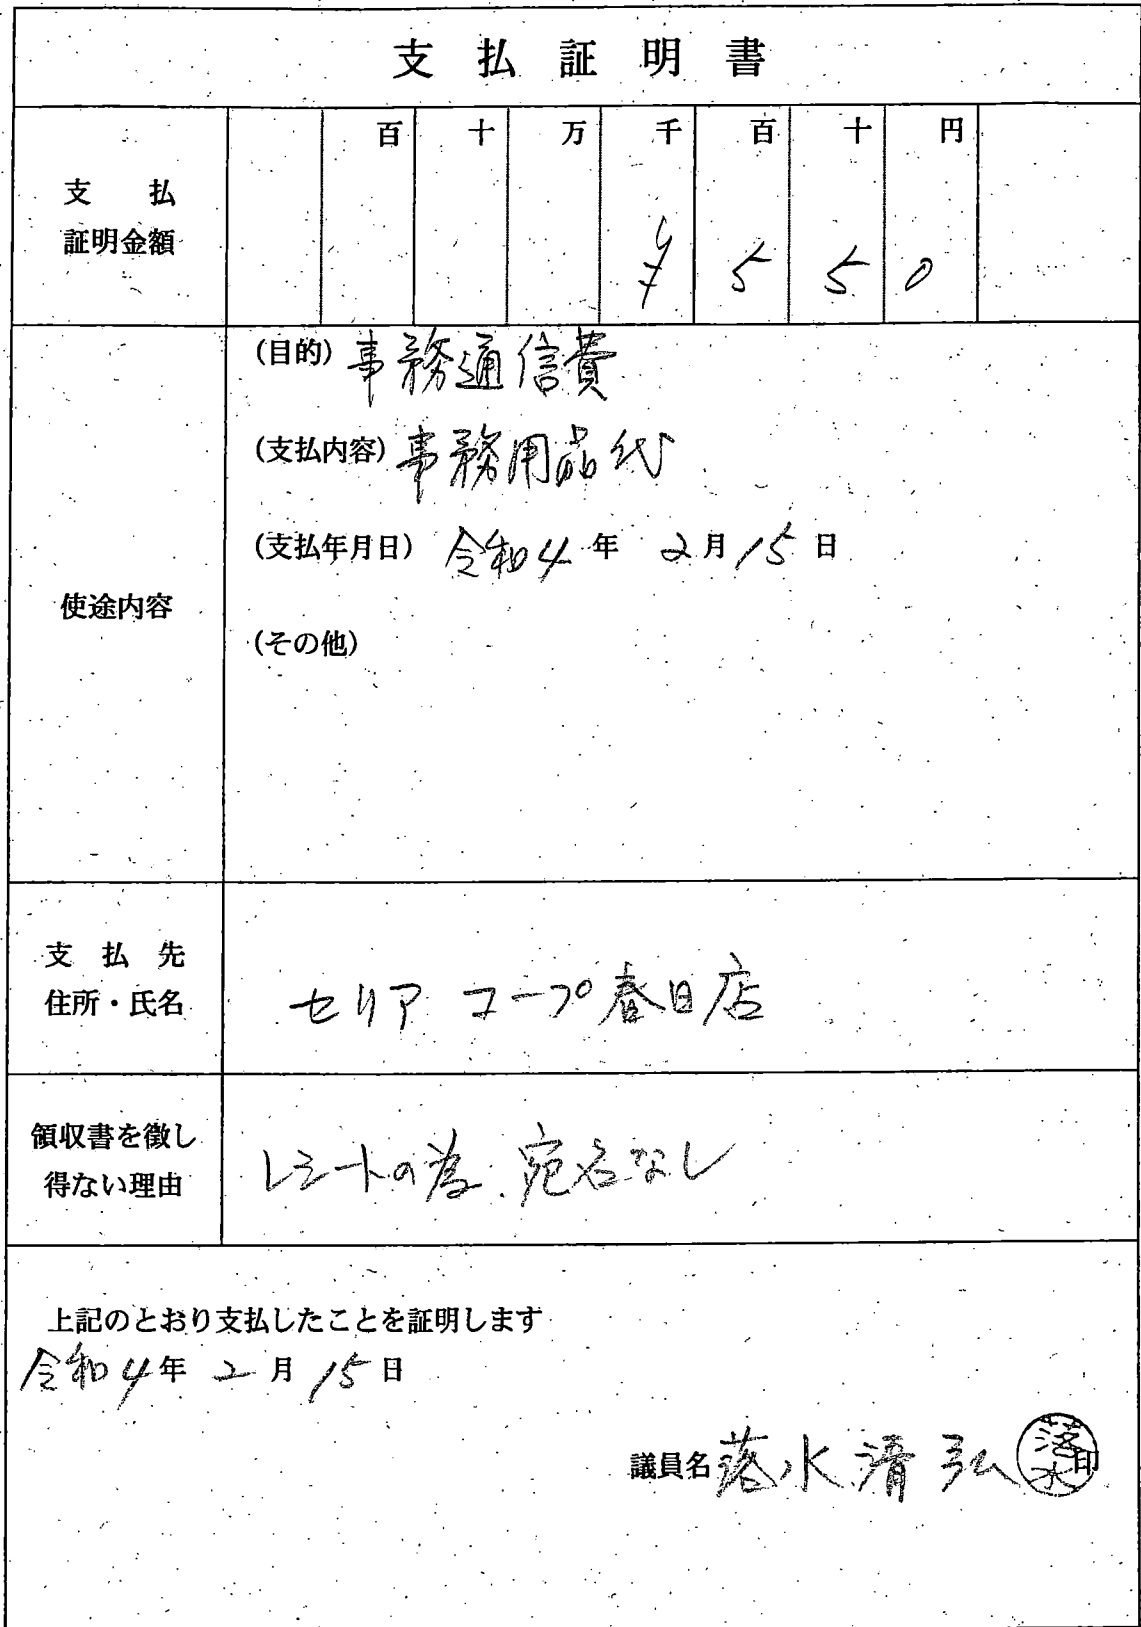 支払証明書
百 十 万 千 百 十 円
支払
証明金額
¥ 5 5 0
(目的) 事務通信費
(支払内容) 事務用品代
(支払年月日) 令和4年 2月15日
使途内容
(その他)
支払先
住所・氏名
セリア コープ春日店
領収書を徴し
得ない理由
レシートの為、宛名なし
上記のとおり支払したことを証明します
令和4年 2月15日
議員名 落水清弘 印
落水